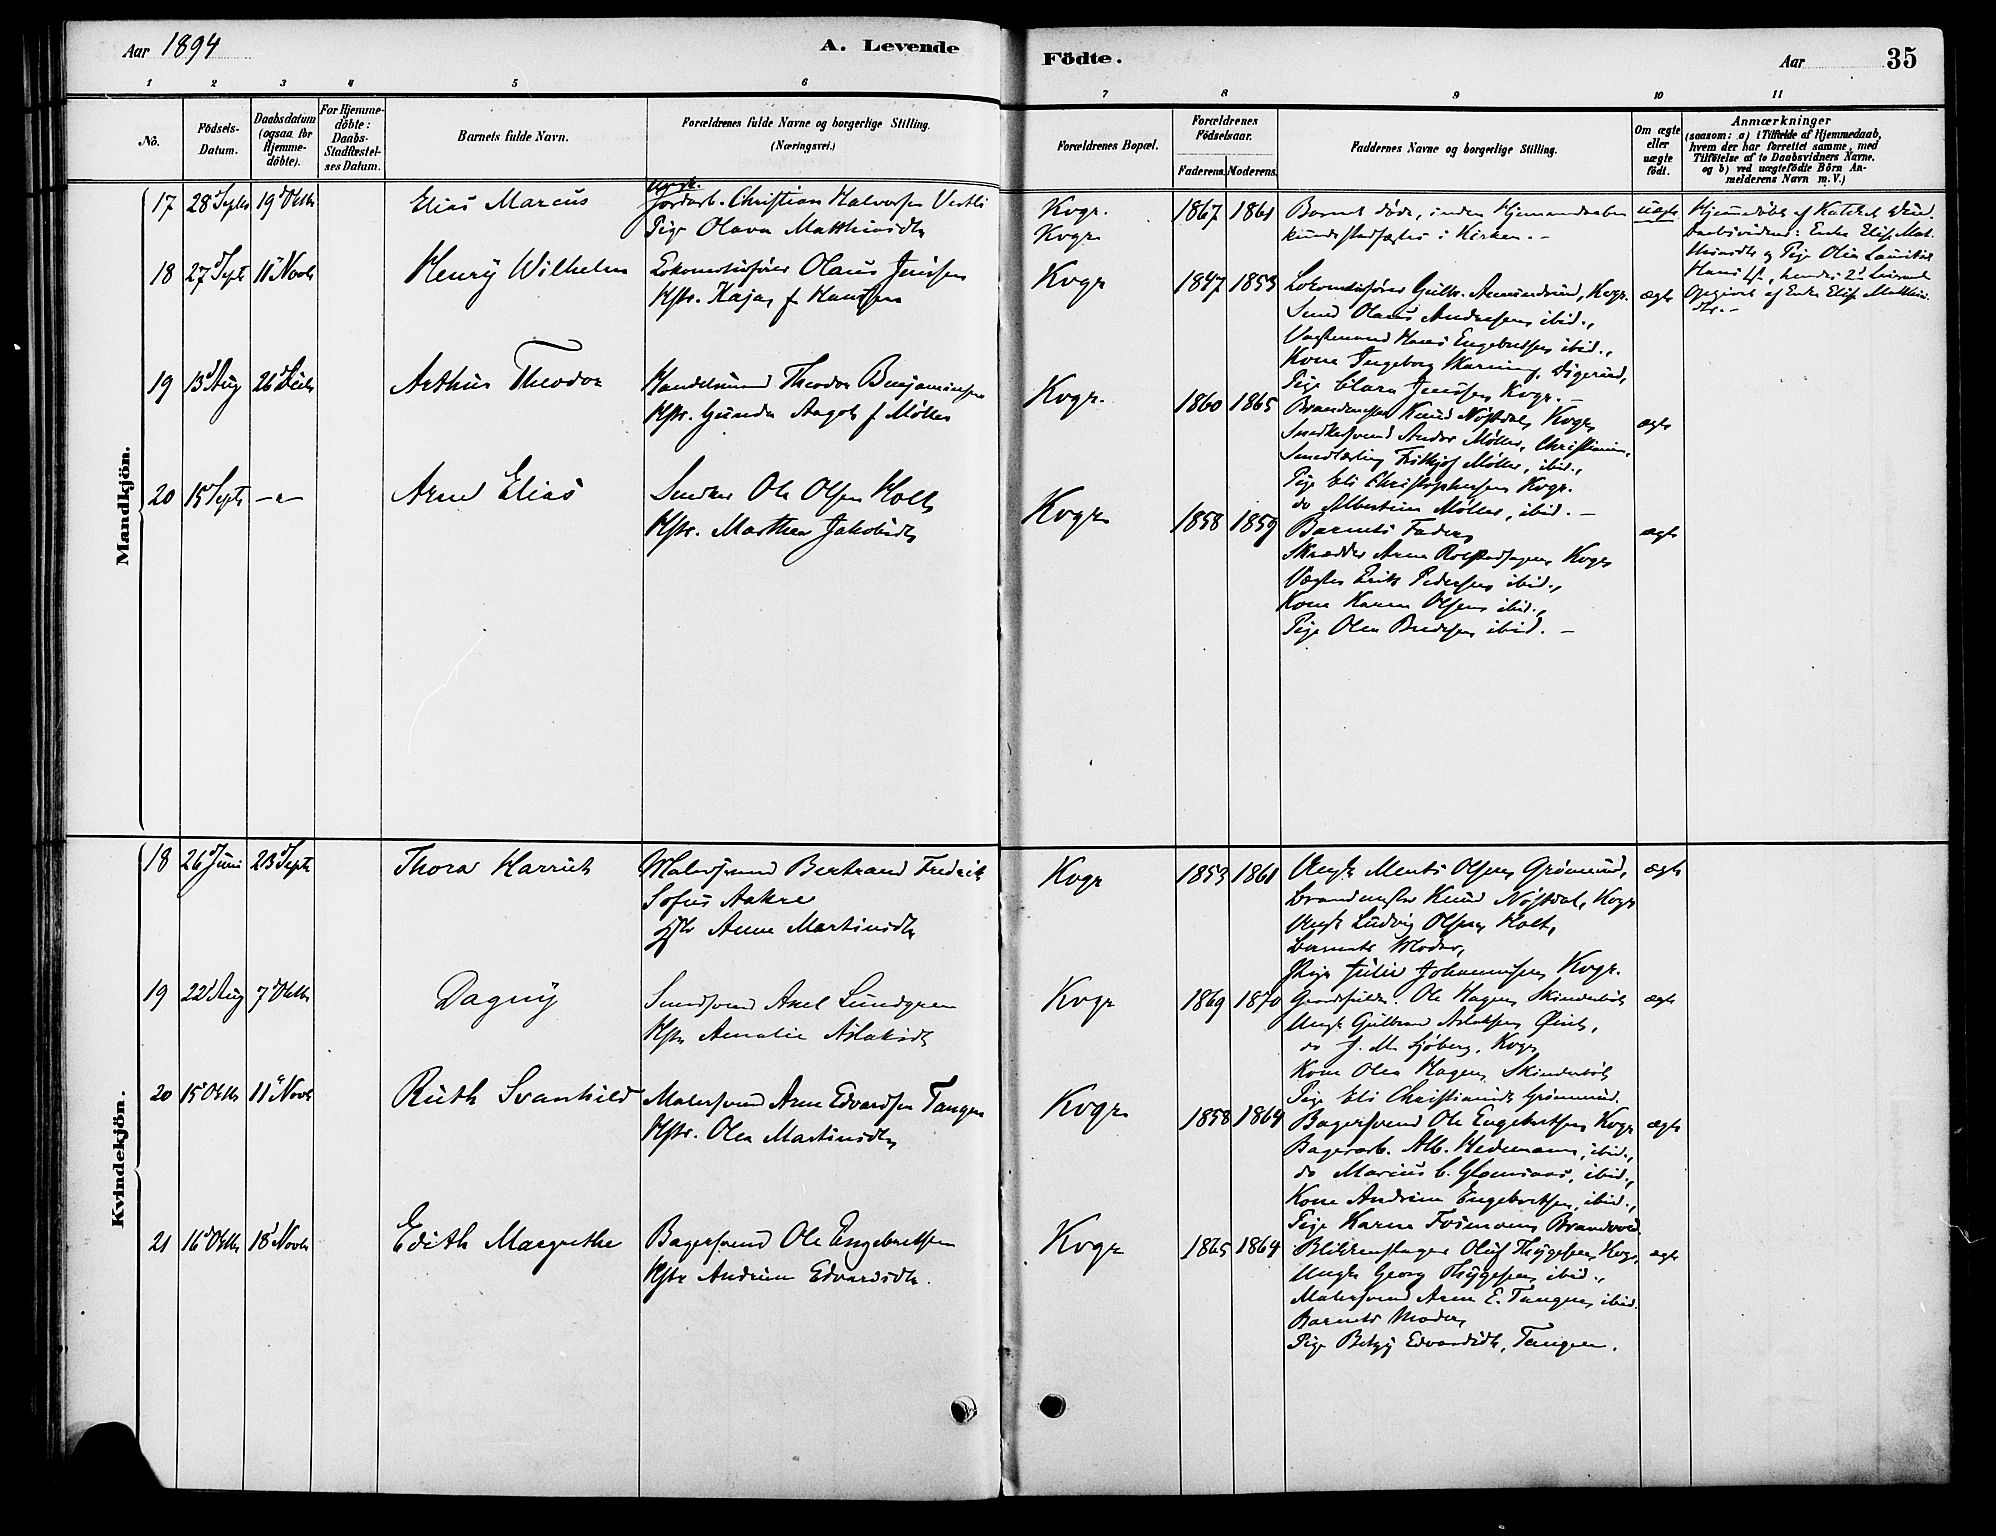 Aar 1894
A. Levende
Födte.
Aar
35
1 2 3 4 5 6 7 8 9 10 11
No.
Födsels-
Datum.
Daabsdatum
(ogsaa for
Hjemme-
döbte).
For Hjemme-
döbte:
Daabs-
Stadfæstel-
ses Datum.
Barnets fulde Navn.
Forældrenes fulde Navne og borgerlige Stilling.
(Næringsvei.)
Forældrenes Bopæl.
Forældrenes
Födselsaar.
Faderens. Moderens.
Faddernes Navne og borgerlige Stilling.
Om ægte
eller
uægte
födt.
Anmærkninger
(saasom: a) i Tilfælde af Hjemmedaab,
hvem der har forrettet samme, med
Tilföielse af to Daabsvidners Navne,
og b) ved uægtefödte Börn An-
melderens Navn m. V.)
Mandkjön.
17 28 Septr 19 Oktb
Elias Marcus
Ungk.
Jordarb. Christian Halvorsen Vestli
Pige Olava Matthiasdtr
Kvgr.
Kvgr.
1867 1861
Barnet døde, inden Hjemmedaaben
kunde stadfæstes i Kirken. —
uægte
Hjemmedøbt af
Daabsvidner: Enke Elise Mat-
thiasdtr og Pige
Opgivet af Enke Elise Matthias-
dtr. —
18 27 Septr 11 Novb
Henry Wilhelm
Lokomotivfører Olaus Jenssen
Hstr. Kaja f. Hanssen
Kvgr
1847 1853
Lokomotivfører Gulbr. Amundrud, Kvgr.
Smed Olaus Andresen ibid.,
Hans Engebretsen ibid.,
Kone Ingeborg Digerud,
Pige Clara Jenssen Kvgr. —
ægte
19 13 Aug 26 Decb
Arthur Theodor
Handelsmand Theodor Benjaminsen
Hstr. Gunda Aagot f. Møller
Kvgr.
1860 1865
Brandmester Knud Nøstdal, Kvgr
Snedkersvend Andor Møller, Christiania,
Smedlærling Frithjof Møller, ibid.,
Pige Eli Christophersen Kvgr.
do Albertine Møller, ibid. —
ægte
20 15 Septr —"—
Arne Elias
Snedker Ole Olsen Holt
Hstr. Marthea Jakobsdtr
Kvgr.
1858 1859
Barnets Fader,
Skrædder Arne Kvgr
Vægter Erik Pedersen ibid.,
Kone Karen Olsen ibid.,
Pige Olea ibid. —
ægte
Kvindekjön.
18 26 Juni 23 Septr
Thora Harriet
Malersvend Bertrand Fredrik
Sofus Aakre
Hstr Anne Martinsdtr
Kvgr
1853 1861
Ungk Olsen Grønnerud,
Brandmester Knud Nøstdal, Kvgr
Ungk Ludvig Olsen Holt,
Barnets Moder,
Pige Julie Johannessen Kvgr.
ægte
19 22 Aug 7 Oktb
Dagny
Smedsvend Axel Lundgren
Hstr Amalie Aslaksdtr
Kvgr
1869 1870
Ole Hagen Skinderbøl
Ungk Gulbrand Aslaksen
do J. M. Sjøberg, Kvgr
Kone Olea Hagen, Skinderbøl
Pige Eli Christiansdtr Grønnerud.
ægte
20 15 Oktb 11 Novb
Ruth Svanhild
Malersvend Arne Edvardsen Tangen
Hstr. Olea Martinsdtr
Kvgr.
1858 1864
Bagersvend Ole Engebretsen Kvgr
Bagerarb. Alb. Hedemann, ibid.,
do Marius C. ibid.,
Kone Andrine Engebretsen, ibid.,
Pige Karen Brandvold
ægte
21 16 Oktb 18 Novb
Edith Margrethe
Bagersvend Ole Engebretsen
Hstr Andrine Edvardsdtr.
Kvgr
1865 1864
Blikkenslager Oluf Thygesen Kvgr,
Ungk Georg Thygesen ibid.,
Malersvend Arne E. Tangen, ibid.
Barnets Moder,
Pige Betzy Edvardsdtr, Tangen.
ægte